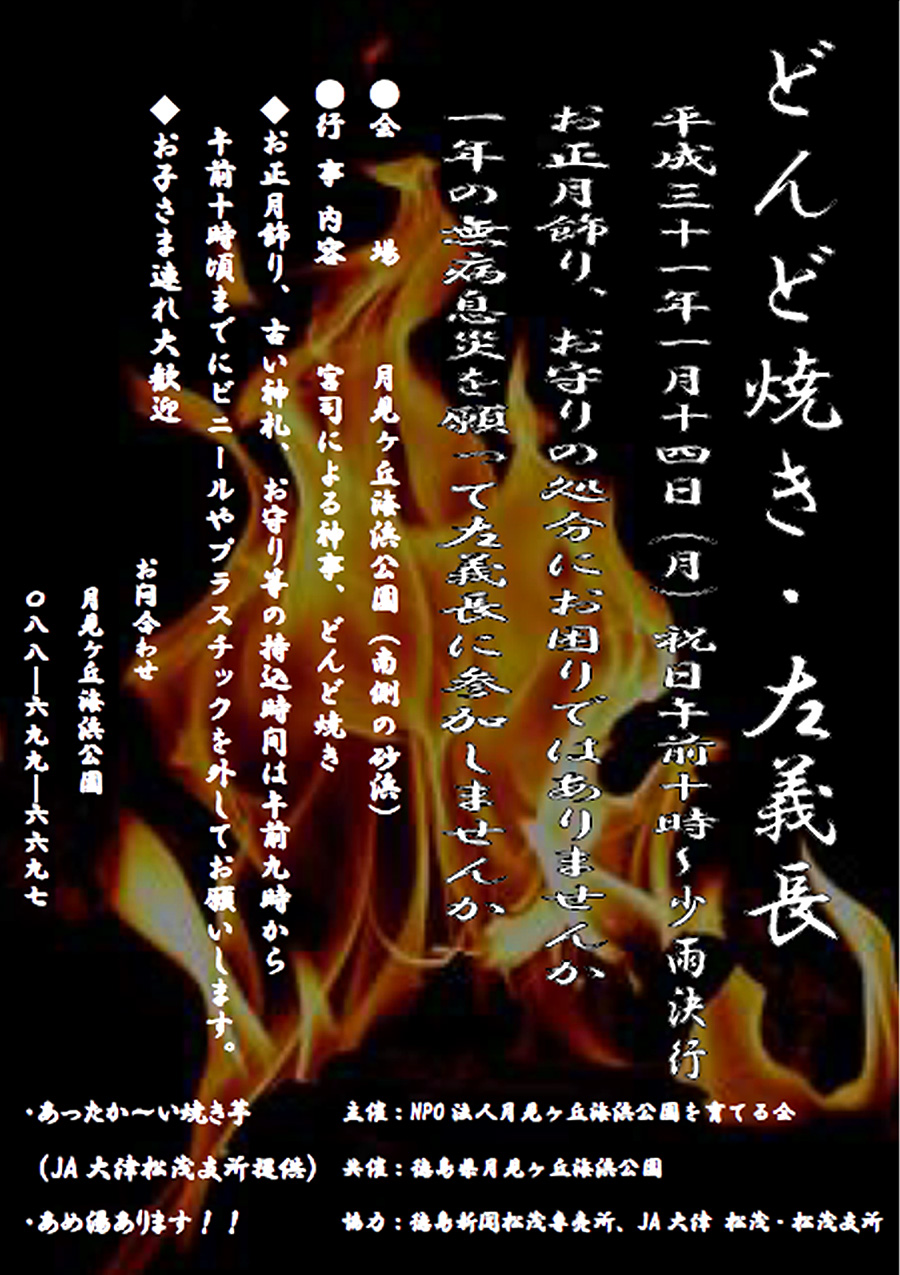 どんど焼き・左義長
平成三十一年一月十四日(月)祝日午前十時~少雨決行
お正月飾り、お守りの処分にお困りではありませんか
一年の無病息災を願って左義長に参加しませんか
●会 場 月見ヶ丘海浜公園(南側の砂浜)
●行事内容 宮司による神事、どんど焼き
◆お正月飾り、古い神札、お守り等の持込時間は午前九時から
午前十時頃までにビニールやプラスチックを外してお願いします。
◆お子さま連れ大歓迎
お問合わせ
月見ヶ丘海浜公園
〇八八―六九九―六六九七
・あったか~い焼き芋
(JA大津松茂支所提供)
・あめ湯あります!!
主催:NPO法人月見ヶ丘海浜公園を育てる会
共催:徳島県月見ヶ丘海浜公園
協力:徳島新聞松茂専売所、JA大津 松茂・松茂支所